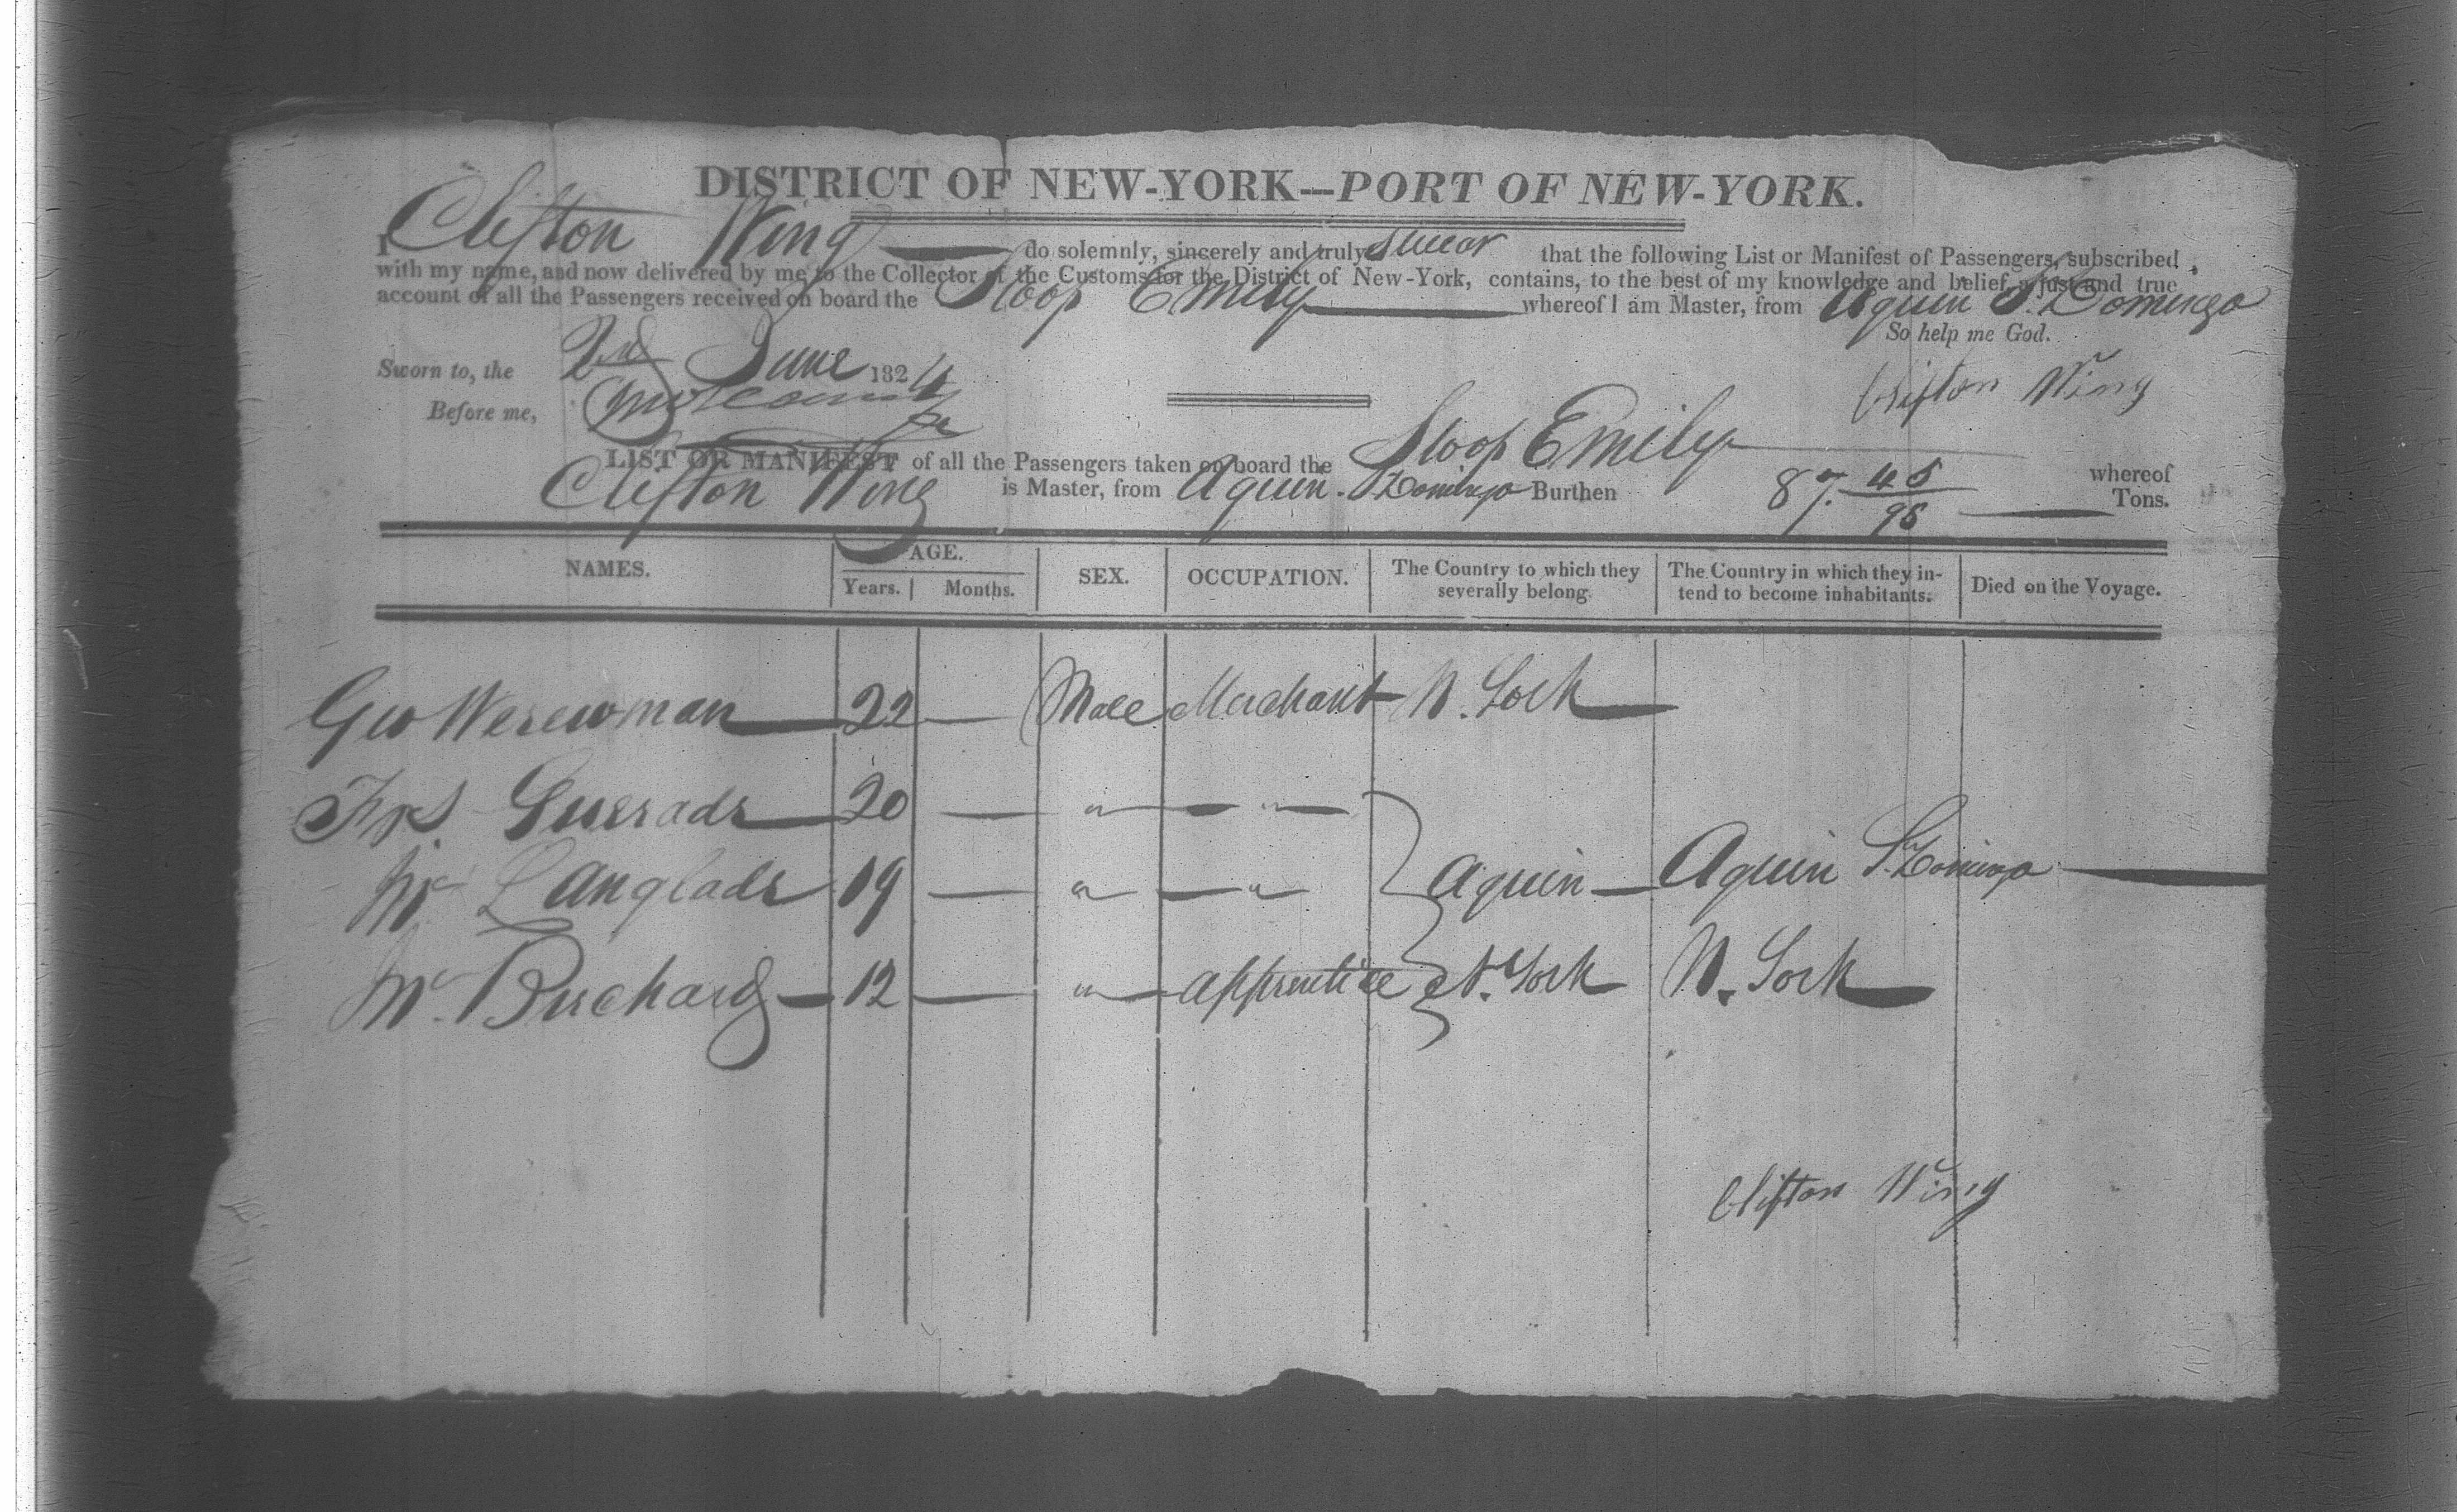 DISTRICT OF NEW-YORK—PORT OF NEW-YORK.
I Clifton Wing do solemnly, sincerely and truly swear that the following List or Manifest of Passengers, subscribed
with my name, and now delivered by me to the Collector of the Customs for the District of New-York, contains, to the best of my knowledge and belief, a just and true
account of all the Passengers received on board the Sloop Emily whereof I am Master, from Aquin St. Domingo
So help me God.
Sworn to, the 2nd June 1824
Clifton Wing
Before me,
LIST OR MANIFEST of all the Passengers taken on board the Sloop Emily whereof
Clifton Wing is Master, from Aquin St. Domingo Burthen 87. 45/95 Tons.
NAMES. AGE. Years. Months. SEX. OCCUPATION. The Country to which they severally belong. The Country in which they intend to become inhabitants. Died on the Voyage.
Geo Werewman 22 — Male Merchant N. York
Guerade 20 — " — " —
Mr Langlade 19 — " — " Aquin — Aquin St. Domingo
Mr. Burchard — 12 — " — apprentice N. York N. York
Clifton Wing